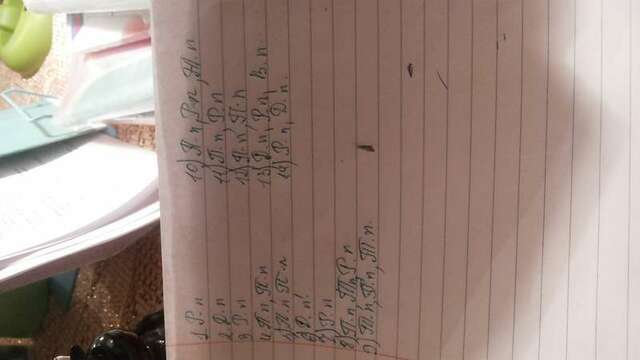 1. Р. п
2. Д. п
3. Р. п
4. П. п, П. п
5) П. п П. п
6) Р. п!
7) Р. п
8) П. п, Т. п, Р. п
9) Т. п, П. п, Т. п.
10) Р. п, Р. п, Т. п
11) П. п, Р. п
12) П. п, П. п
13) Р. п, Р. п, В. п.
14) Р. п, Д. п.